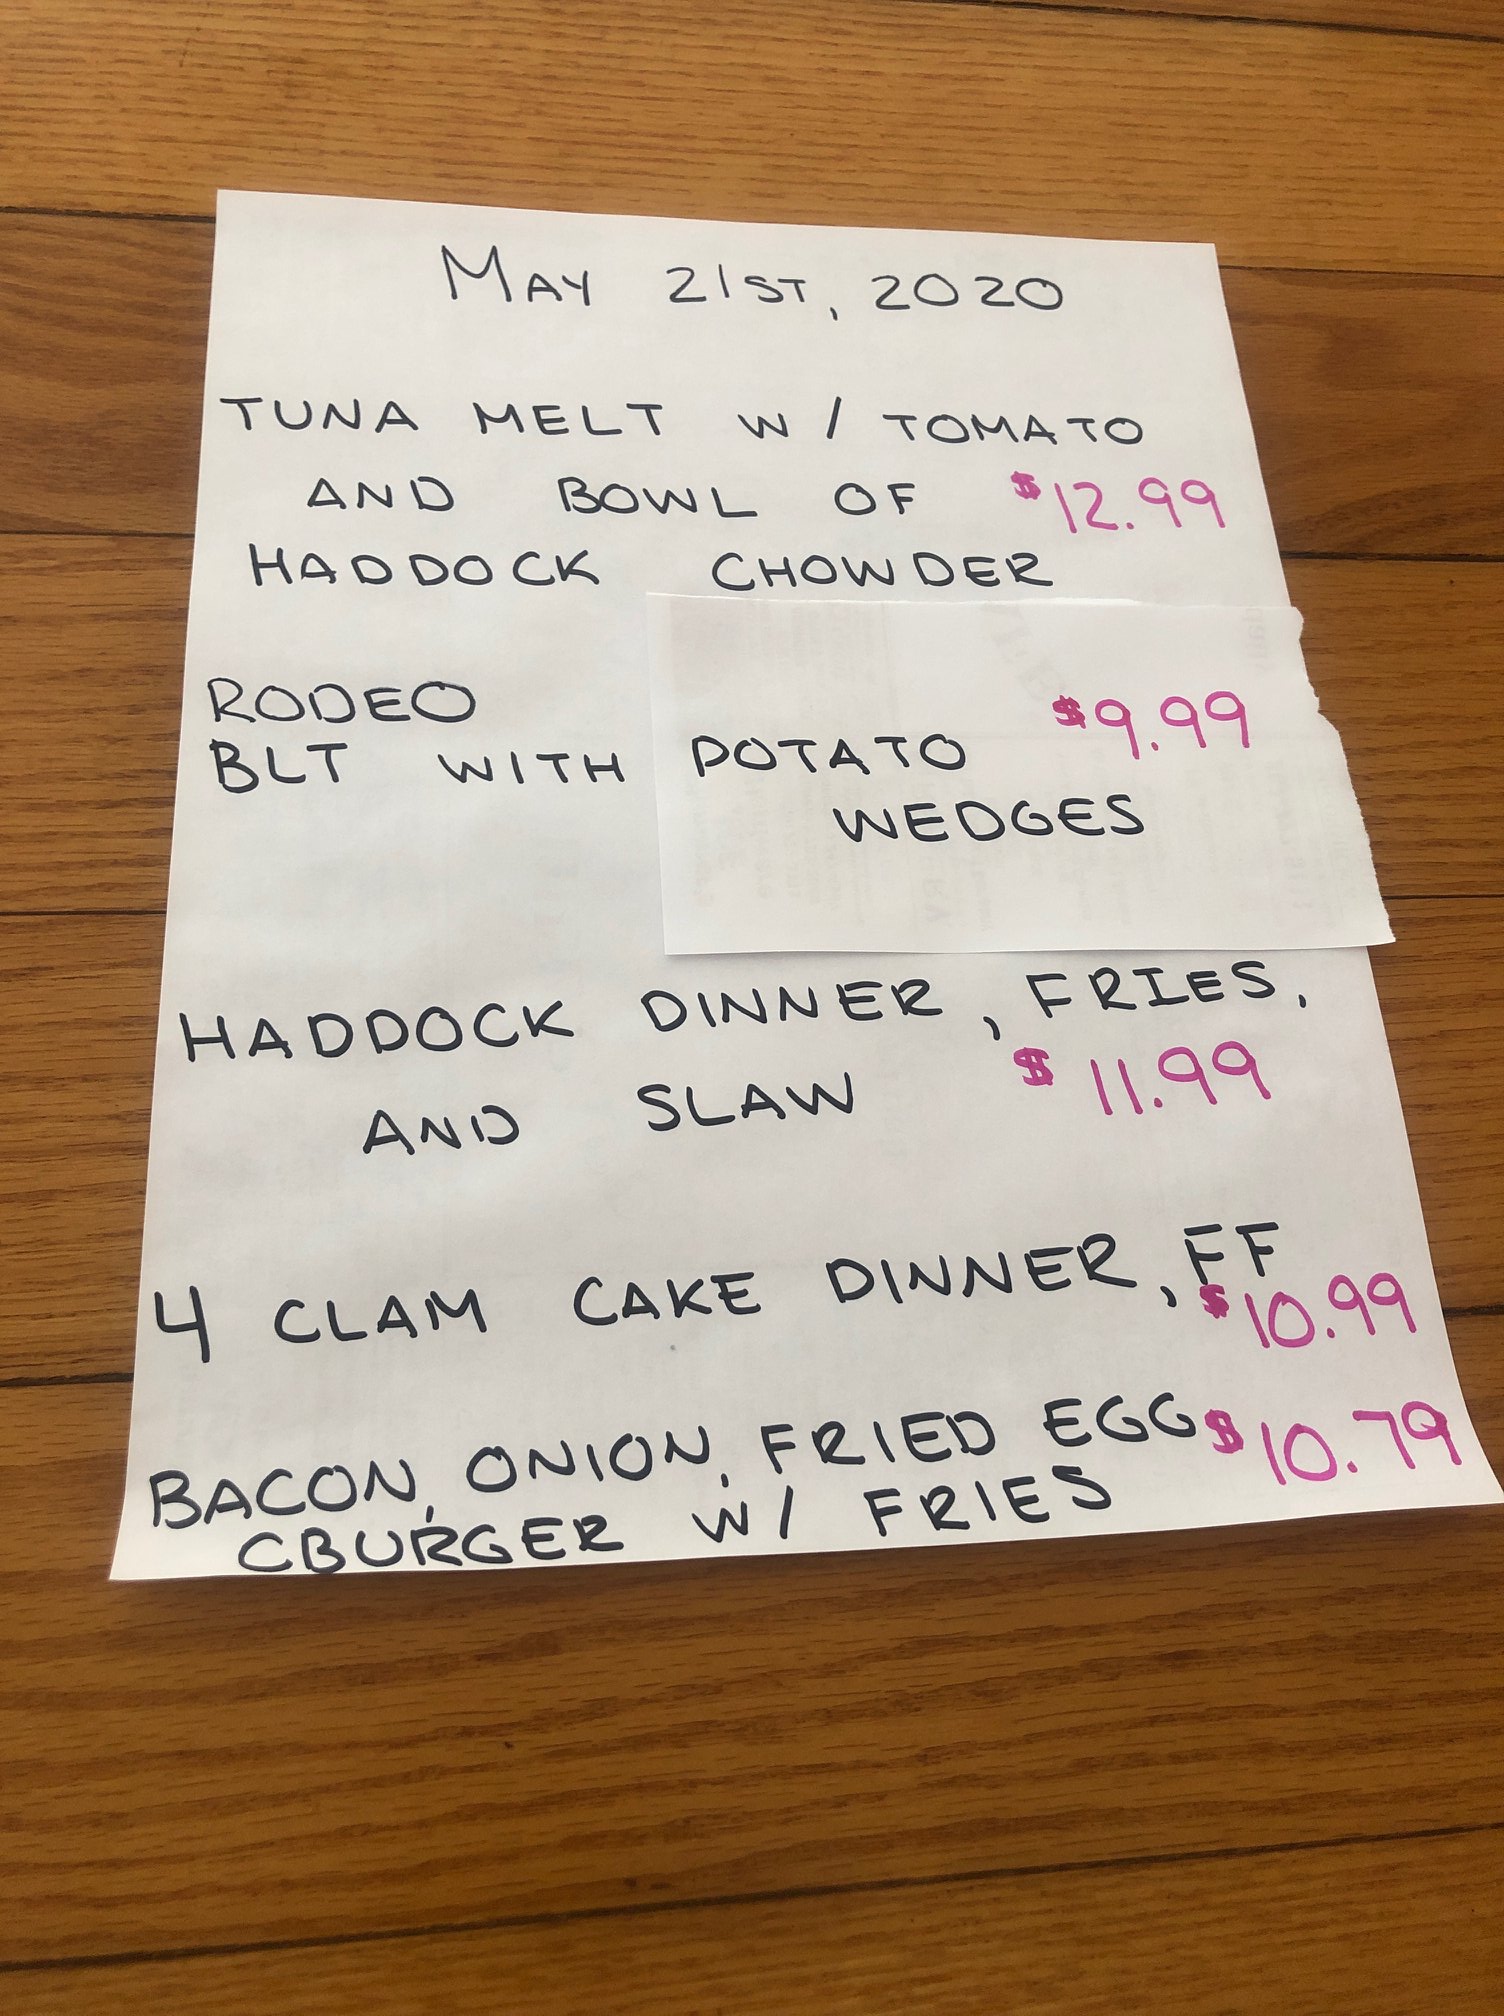 MAY 21ST, 2020
TUNA MELT W/ TOMATO
AND BOWL OF $12.99
HADDOCK CHOWDER
RODEO
$9.99
BLT WITH POTATO
WEDGES
HADDOCK DINNER, FRIES,
AND SLAW $11.99
4 CLAM CAKE DINNER, FF
$10.99
BACON, ONION, FRIED EGG $10.79
CBURGER W/ FRIES